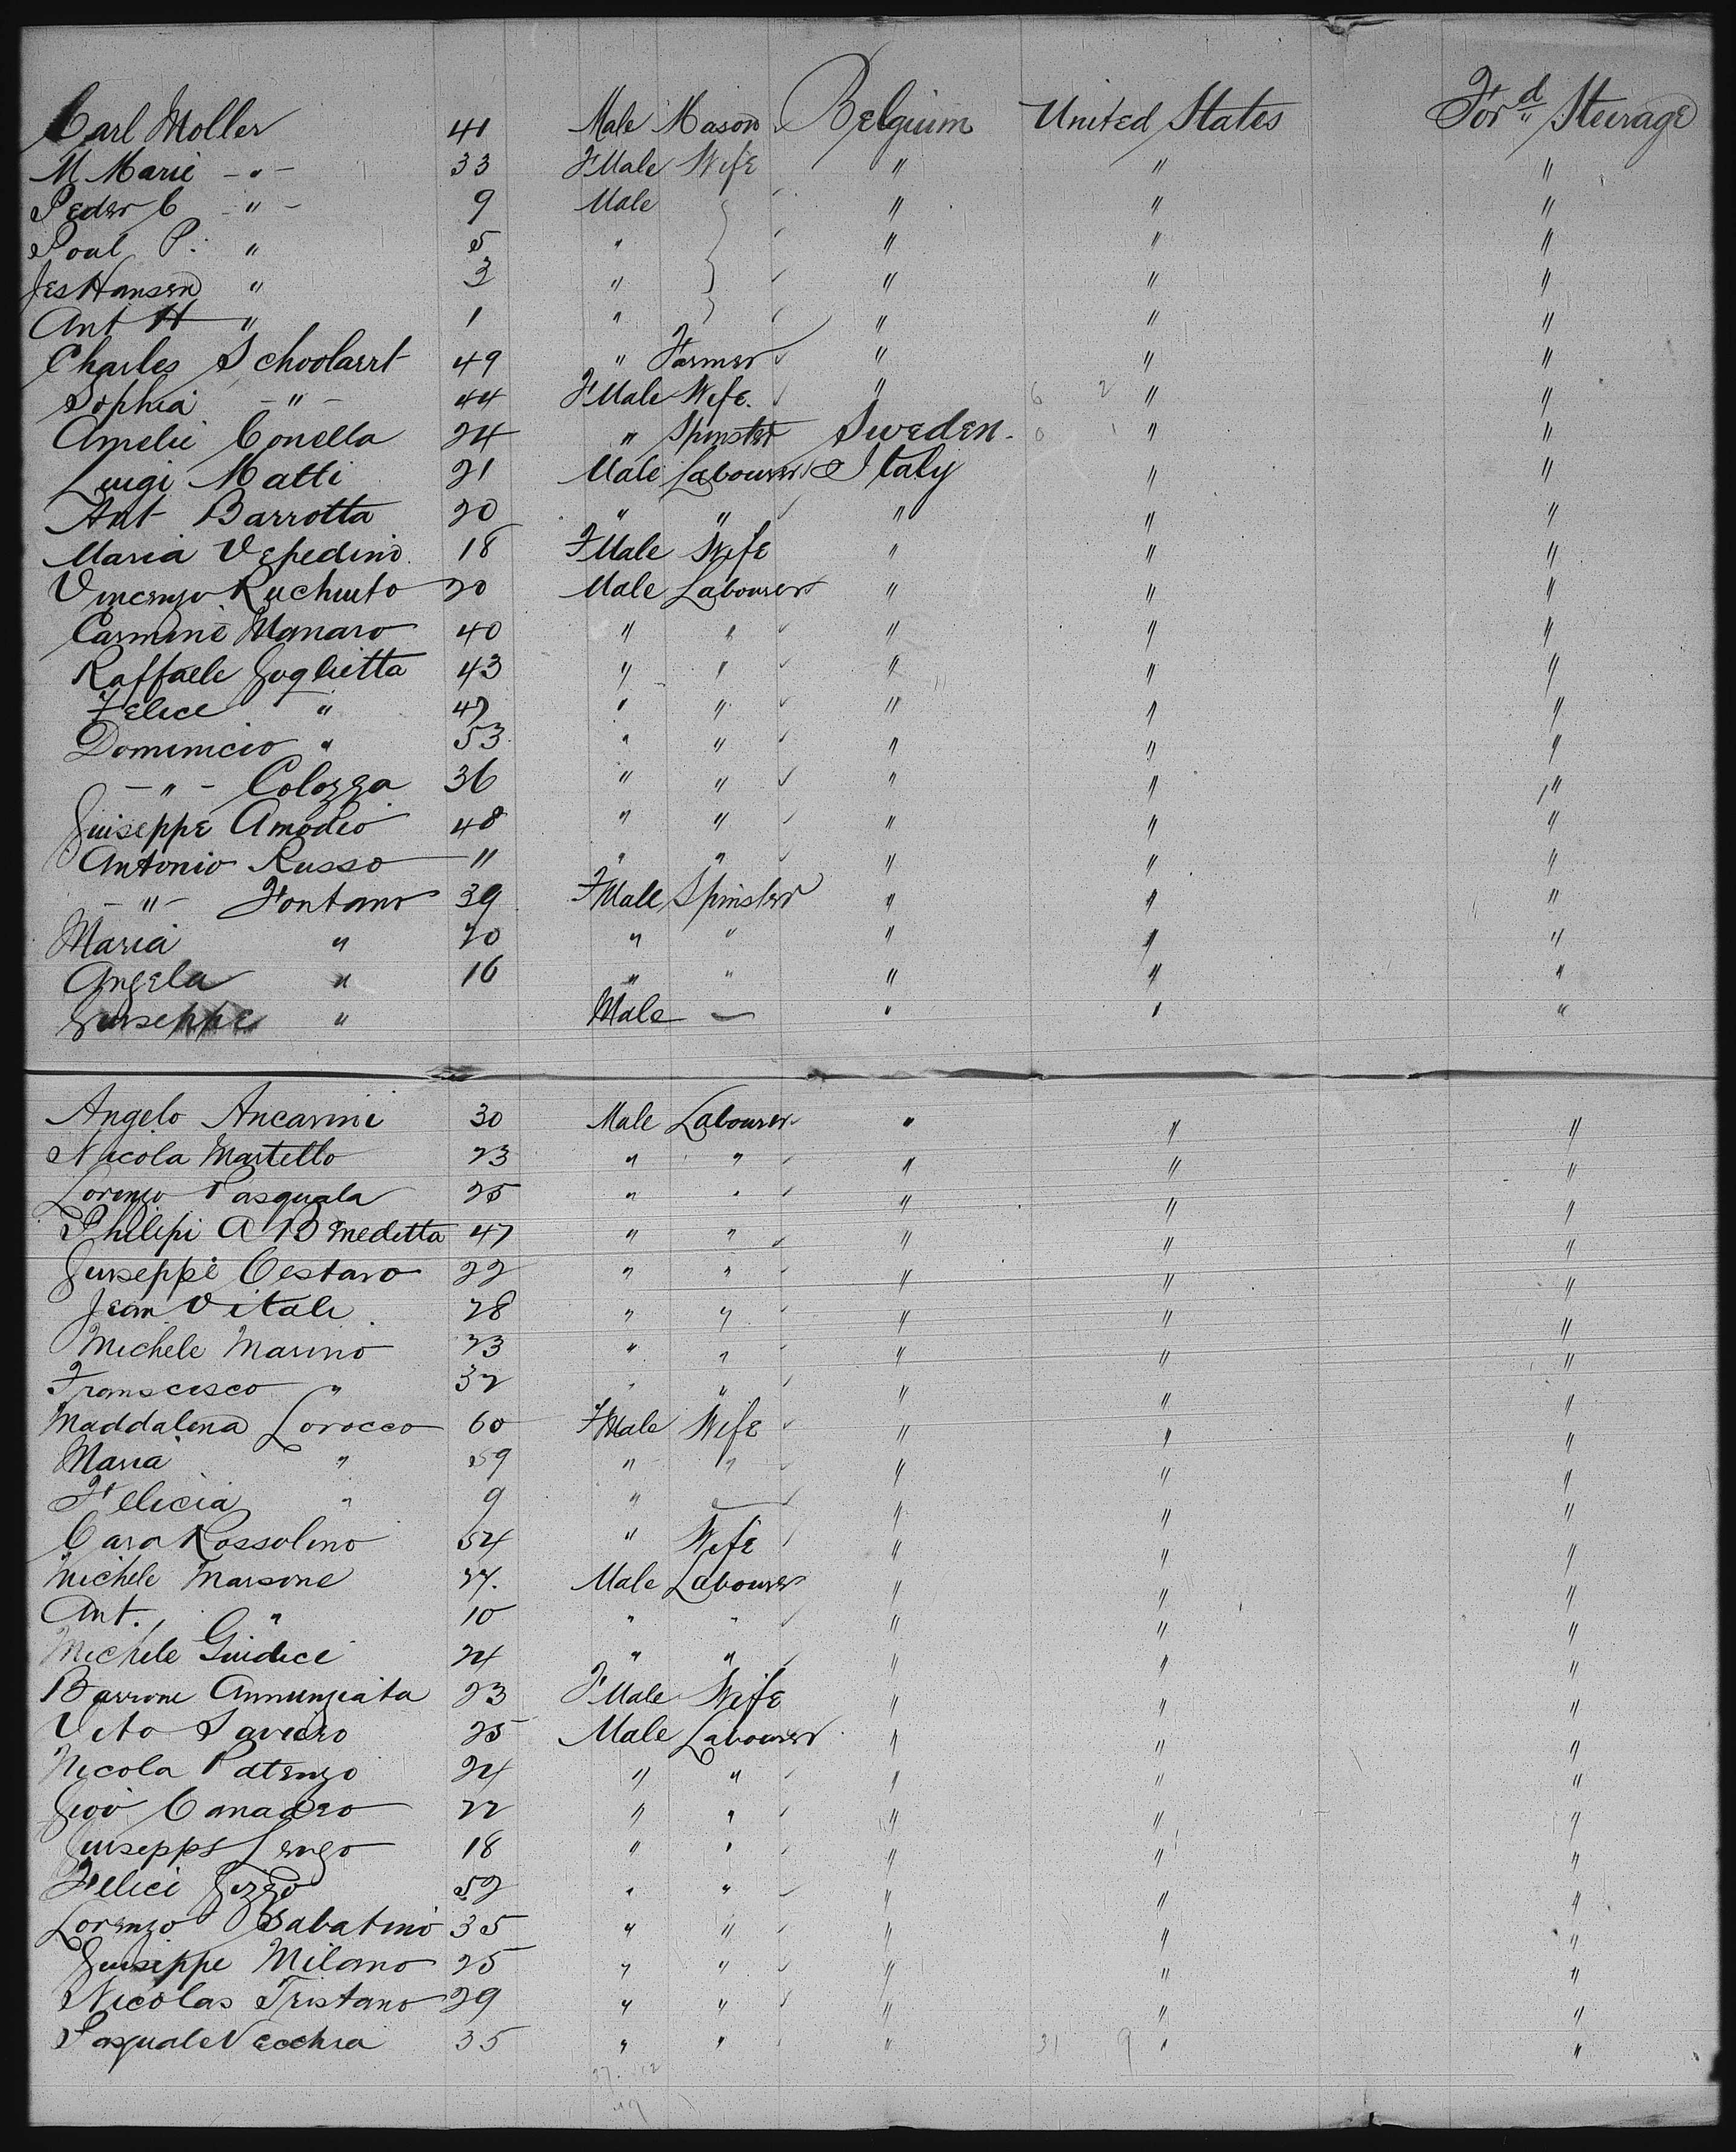 Carl Moller 41 Male Mason Belgium United States For'd Steerage
M Marie -"- 33 FMale Wife " " "
Peder C -"- 9 Male " " "
Poul P. " 5 " " " "
Jes Hansen " 3 " " " "
Ant H " 1 " " " "
Charles Schoolarrt 49 " Farmer " " "
Sophia -"- 44 FMale Wife. " 6 2 " "
Amelie Conella 24 " Spinster Sweden. 0 1 " "
Luigi Matti 21 Male Labourer Italy " "
Ant Barrotta 20 " " " " "
Maria Vepedino 18 FMale Wife " " "
Vincenzo Ruchiuto 20 Male Labourer " " "
Carmine Manaro 40 " " " " "
Raffaele Goglietta 43 " " " " "
Felice " 47 " " " " "
Dominicio " 53 " " " " "
-"- Colozza 36 " " " " "
Guiseppe Amodeo 48 " " " " "
Antonio Russo " " " " " "
-"- Fontano 39 FMale Spinster " " "
Maria " 20 " " " " "
Angela " 16 " " " " "
Guiseppe " Male — " " "
Angelo Ancarini 30 Male Labourer " " "
Nicola Martello 23 " " " " "
Lorenzo Pasquala 25 " " " " "
Philepi A Benedetta 47 " " " " "
Guiseppe Cestaro 22 " " " " "
Jean Vitale 28 " " " " "
Michele Marino 23 " " " " "
Franscisco " 32 " " " " "
Maddalena Lorocco 60 FMale Wife " " "
Maria " 59 " " " " "
Felicia " 9 " — " " "
Cara Rossolino 54 " Wife " " "
Michele Marsone 27. Male Labourer " " "
Ant. " 10 " " " " "
Michele Guidice 24 " " " " "
Barrone Annunziata 23 FMale Wife " " "
Vito Saviero 25 Male Labourer " " "
Nicola Patenzo 24 " " " " "
Giov Canadeo 22 " " " " "
Guiseppe Lengo 18 " " " " "
Felici Gizzo 52 " " " " "
Lorenzo Sabatino 35 " " " " "
Guiseppe Milano 25 " " " " "
Nicolas Tristano 29 " " " " "
Pasquale Vecchia 35 " " " 31 9 " "